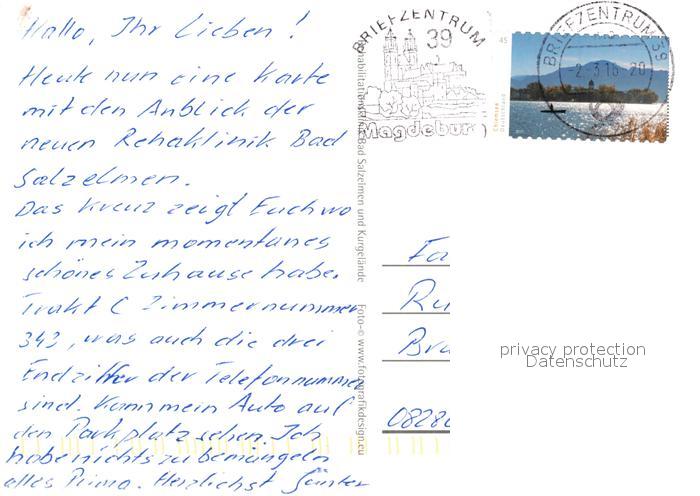 Hallo, Ihr Lieben!
Heute nun eine Karte
mit den Anblick der
neuen Rehaklinik Bad
Salzelmen.
Das Kreuz zeigt Euch wo
ich mein momentanes
schönes Zuhause habe.
Trakt C Zimmernummer
343, was auch die drei
Endziffer der Telefonnummer
sind. Kann mein Auto auf
den Parkplatz sehen. Ich
habe nichts zu bemängeln
alles Prima. Herzlichst Günter
Rehabilitationsklinik Bad Salzelmen und Kurgelände
Foto-© www.fotografikdesign.eu
BRIEFZENTRUM
39
Magdeburg
45
Chiemsee
Deutschland
BRIEFZENTRUM 39
Fa
Ru
Bru
0828
privacy protection
Datenschutz